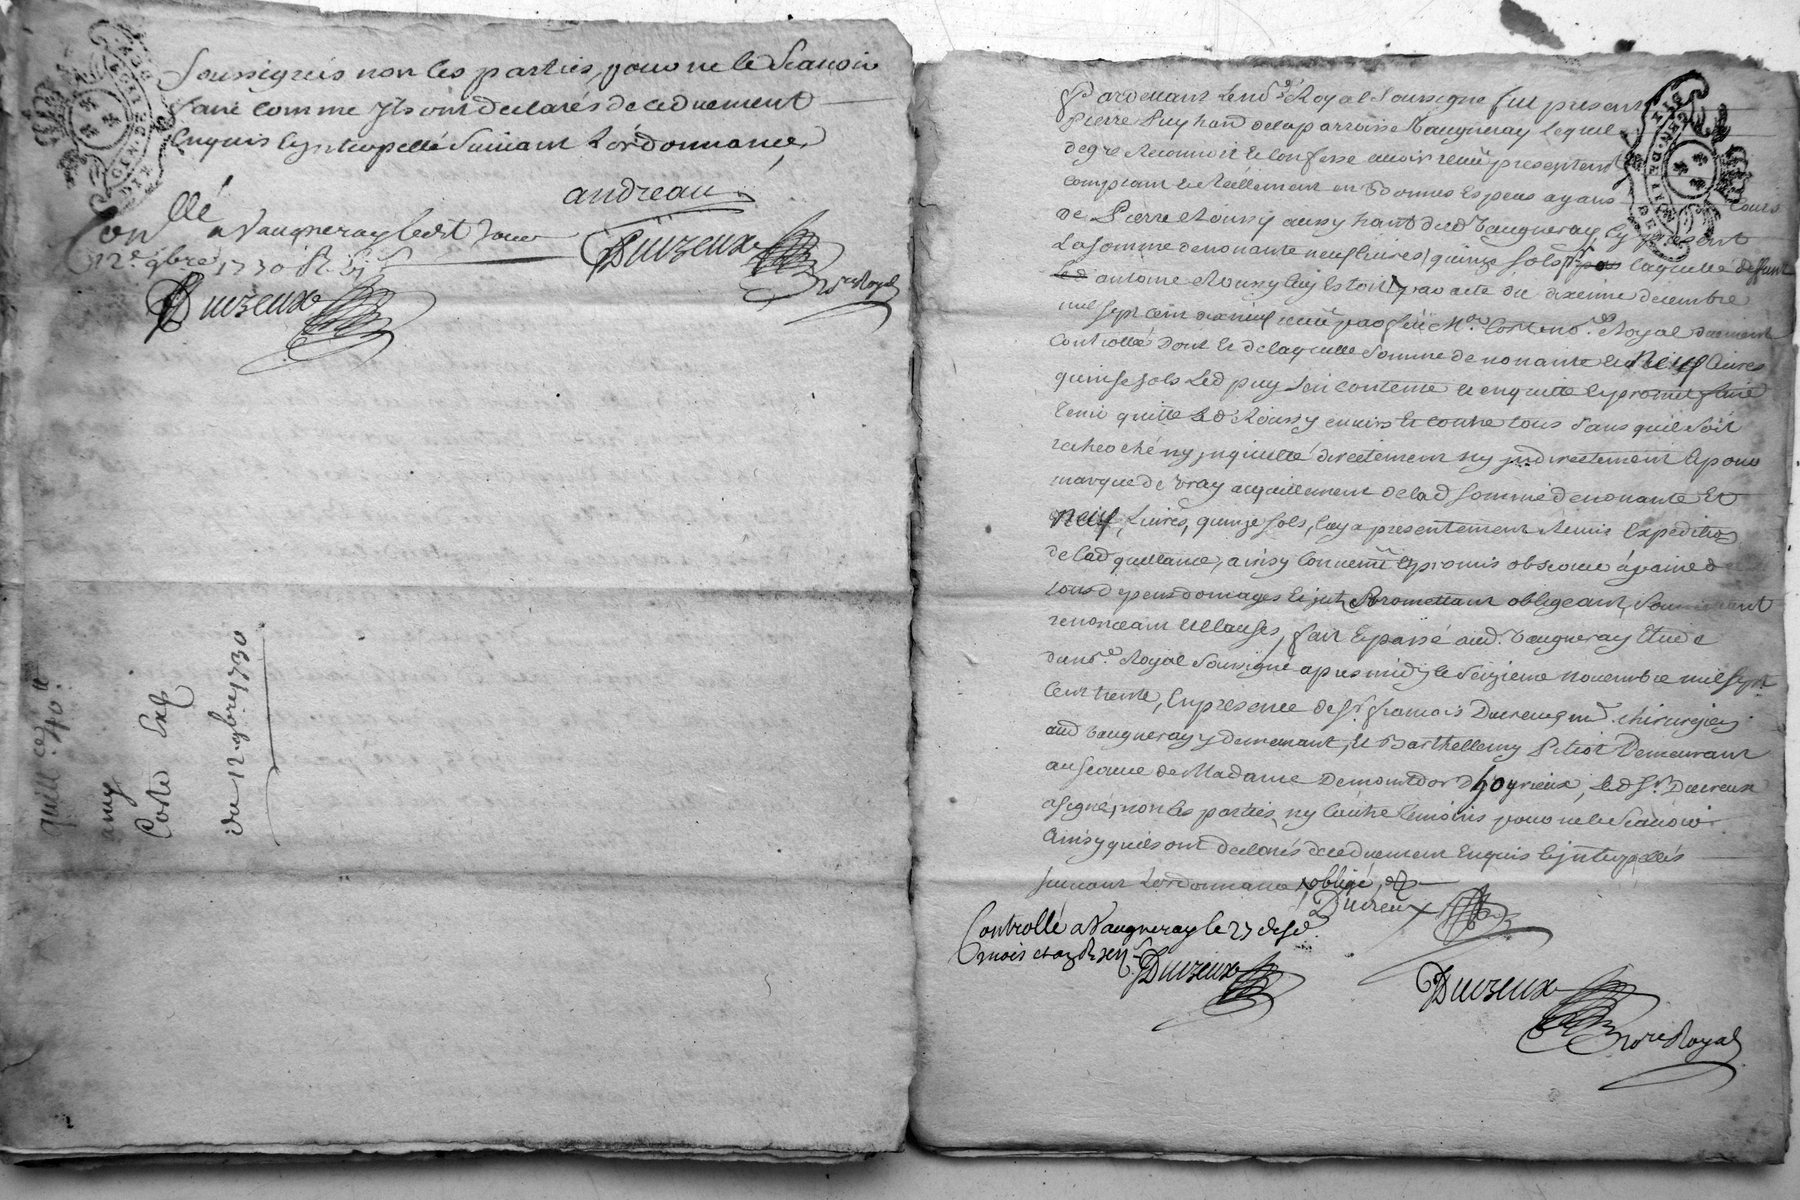 Soussignés non les parties, pour ne le Scauoir
faire comme Ils ont declarés de ce duement
Enquis Et Interpellé Suiuant Lordonnance,
andreau
Conllé a Vaugneray ledit Jour
12e 9bre 1730
Duizeux
Duizeux
nore Royal
quitt ce 40 tt
amy
Coste Exp
du 12 9bre 1730
GEN. DE LION
Pardeuant Le nore Royal Soussigné fut present
Pierre Puy hant de la parroisse Vaugneray Lequel
degre Reconnoit et Confesse auoir receu presentement
comptant et Reellement en bonnes Especes ayans Cours
de Pierre Roussy aussy hant dud Vaugneray, Cy present
La Somme de nonante neuf Liures, quinze Sols, laquelle deffunt
antoine Roussy par acte du dixieme decembre
mil Sept cent dix neuf receu par feu Me Coste nore Royal duement
Controllés Dont et de laquelle Somme de nonante et Neuf Liures
quinse Sols Led puy Sen contente et en quitte Et promet faire
tenir quitte Led Roussy enuers et contre tous Sans quil Soit
recherché ny Inquietté directement ny Indirectement Et pour
marque de Vray acquittement de lad Somme de nonante Et
Neuf, Liures, quinze Sols, luy a presentement Remis Expedition
de lad quittance, ainsy Conuenu Et promis obseruer à paine de
tous depens domages Et Int Promettant obligeant, Soumettant
renonceant Clauses, fait Et passé aud. Vaugneray Etude
du nore Royal Soussigné apres midy le Seizieme nouembre mil Sept
Cent trente, En presence de Sr. francois Ducreux mre chirurgien
aud Vaugneray y demeurant, et Barthellemy Pitiot Demeurant
au Seruice de Madame Demontdor d'hoyrieux, Led Sr. Ducreux
a Signé, non les parties, ny Lautre temoins pour ne le Scauoir
Ainsy quils ont declarés de ce duement Enquis Et Interpellés
Suiuant Lordonnance, obligé,
Ducreux
Controllé a Vaugneray le 27 desd.
mois et an
Duizeux
Duizeux
nore Royal